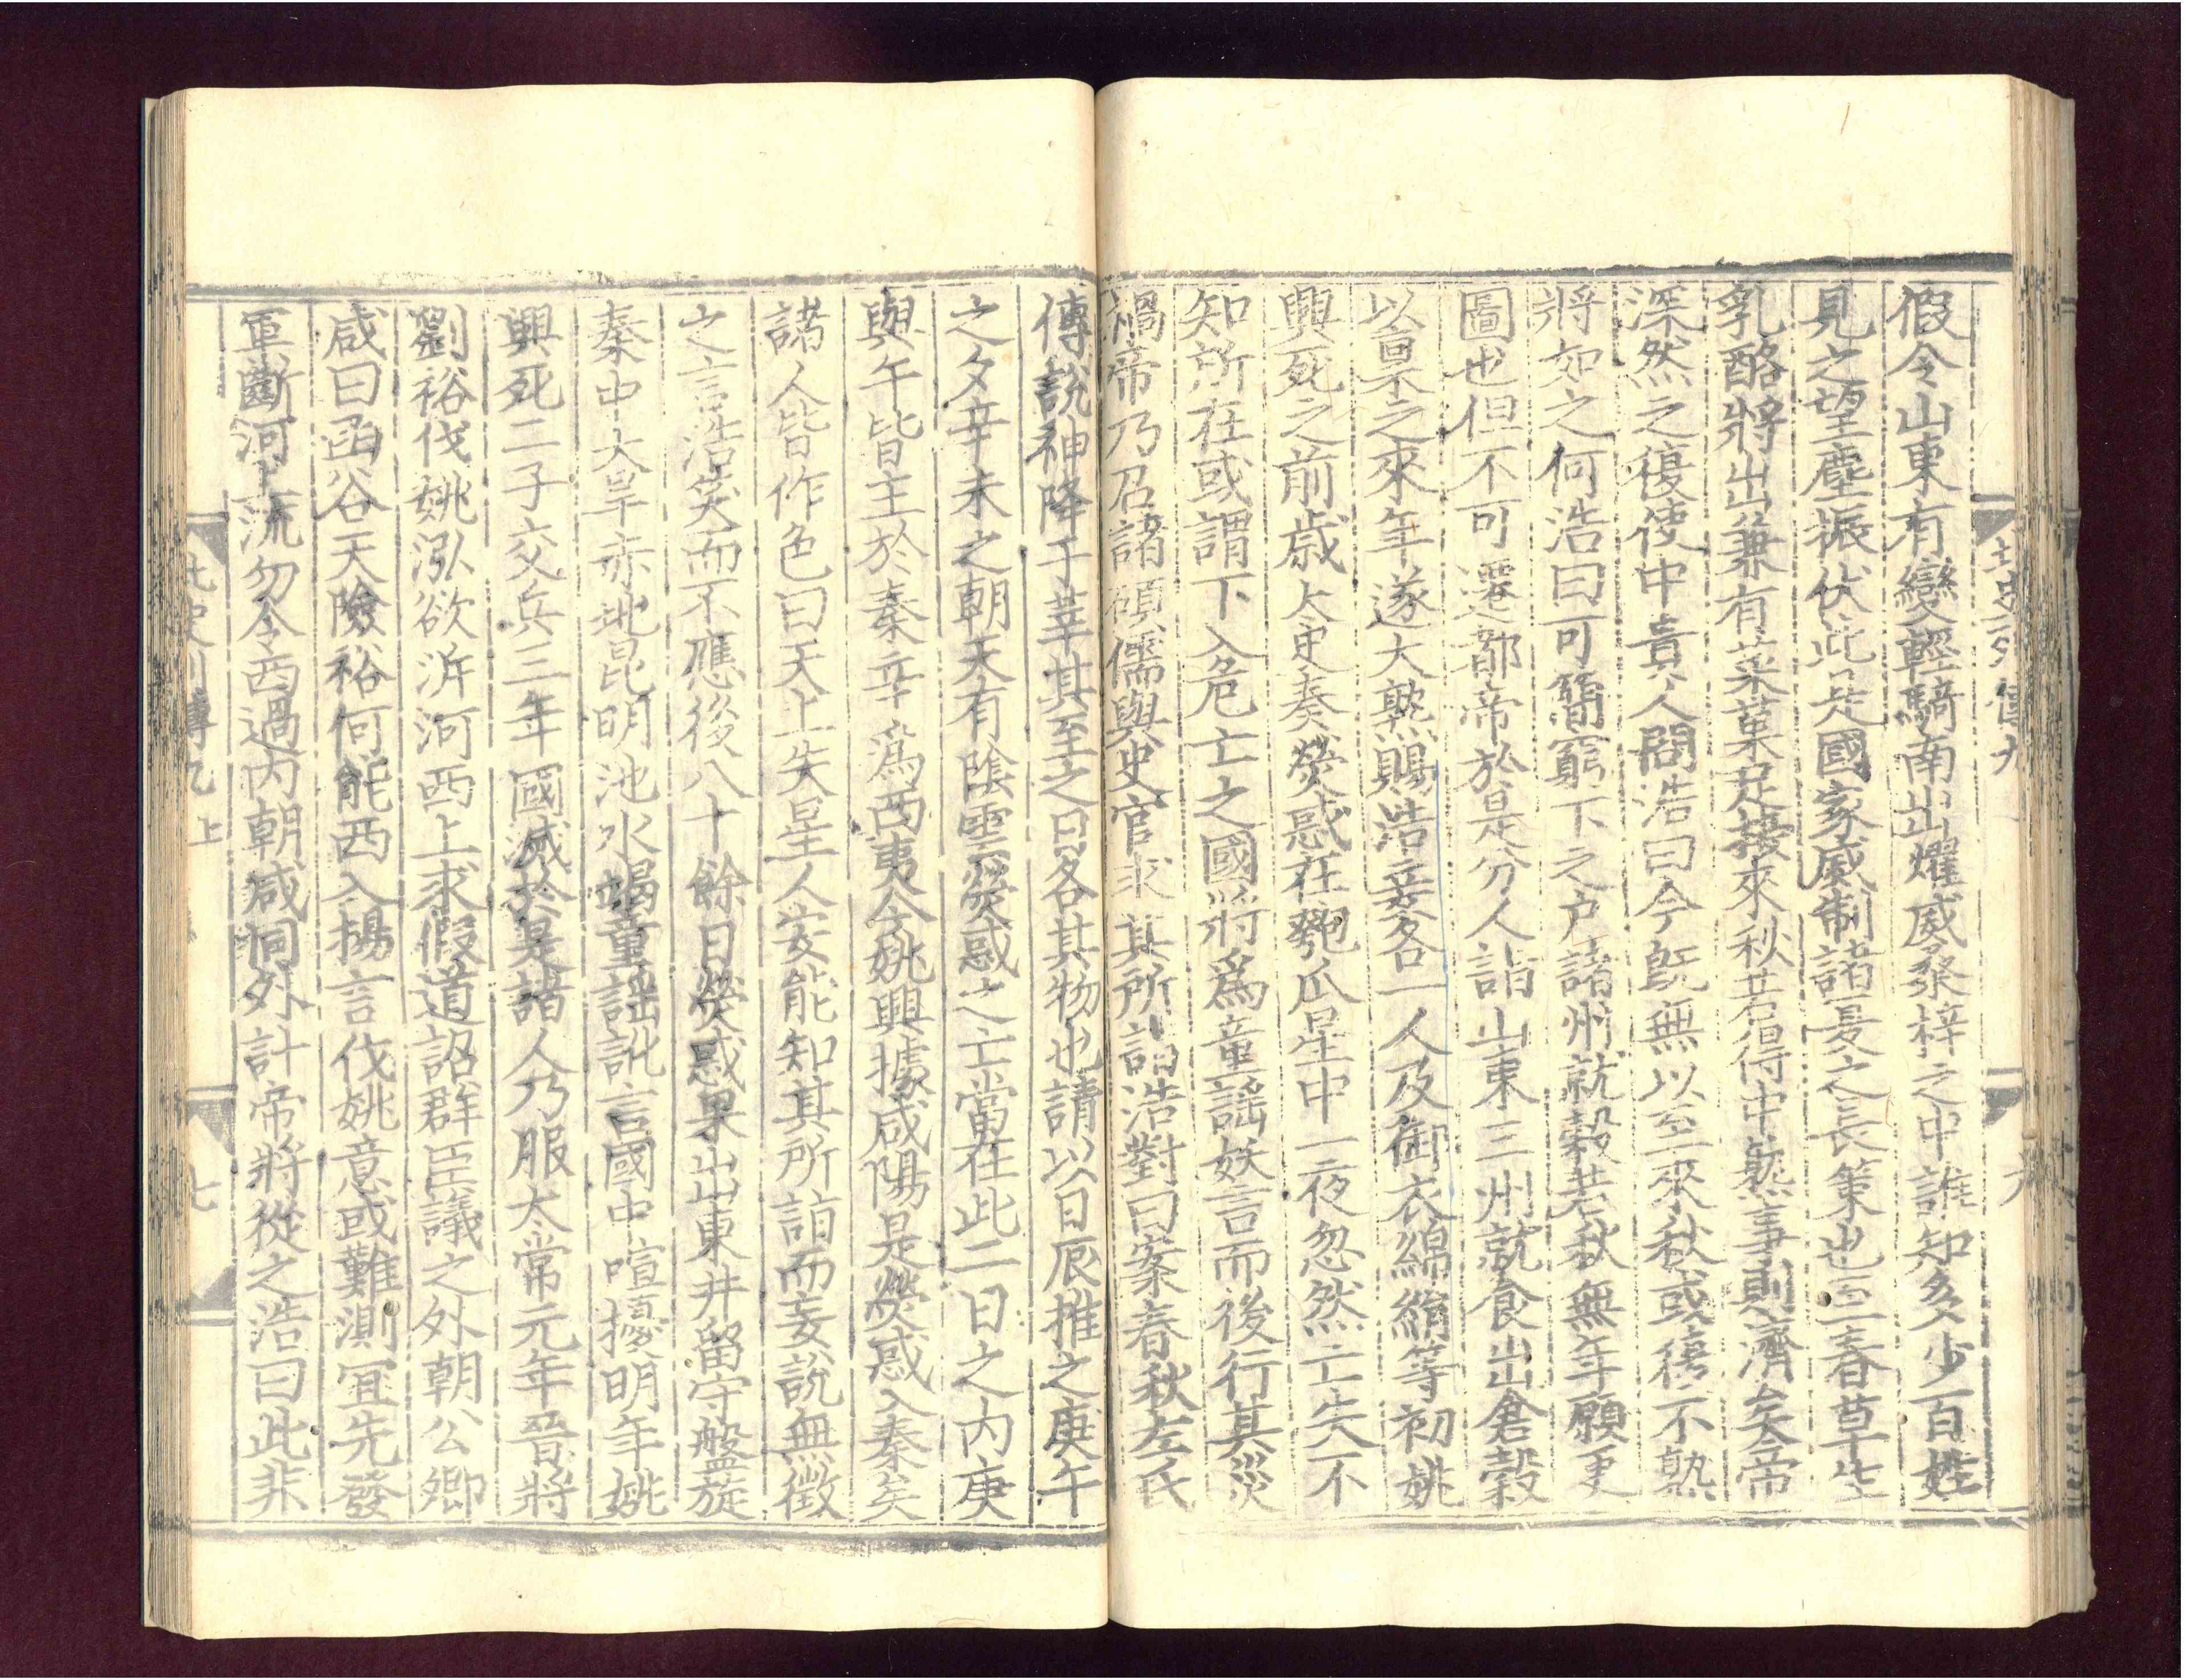 北史列傳九
六
假令山東有變輕騎南出燿威桑梓之中誰知多少百姓
見之望塵振伏此是國家威制諸夏之長策也至春草生
乳酪將出兼有菜菓足接來秋若得中熟事則濟矣帝
深然之復使中貴人問浩曰今旣無以至來秋或復不熟
將如之何浩曰可簡窮下之戶諸州就穀若秋無年願更
圖也但不可遷都帝於是分人詣山東三州就食出倉穀
以稟之來年遂大熟賜浩妾各一人及御衣綿絹等初姚
興死之前歲太史奏熒惑在匏瓜星中一夜忽然亡失不
知所在或謂下入危亡之國將爲童謠妖言而後行其災
禍帝乃召諸碩儒與史官求其所詣浩對曰案春秋左氏
傳說神降于莘其至之日各其物也請以日辰推之庚午
之夕辛未之朝天有陰雲熒惑之亡當在此二日之內庚
與午皆主於秦辛爲西夷今姚興據咸陽是熒惑入秦矣
諸人皆作色曰天上失星人安能知其所詣而妄說無徵
之言浩笑而不應後八十餘日熒惑果出東井留守盤旋
秦中大旱赤地昆明池水竭童謠訛言國中喧擾明年姚
興死二子交兵三年國滅於是諸人乃服太常元年晉將
劉裕伐姚泓欲泝河西上求假道詔群臣議之外朝公卿
咸曰函谷天險裕何能西入揚言伐姚意或難測宜先發
軍斷河上流勿令西過內朝咸同外計帝將從之浩曰此非
北史列傳九 上
七